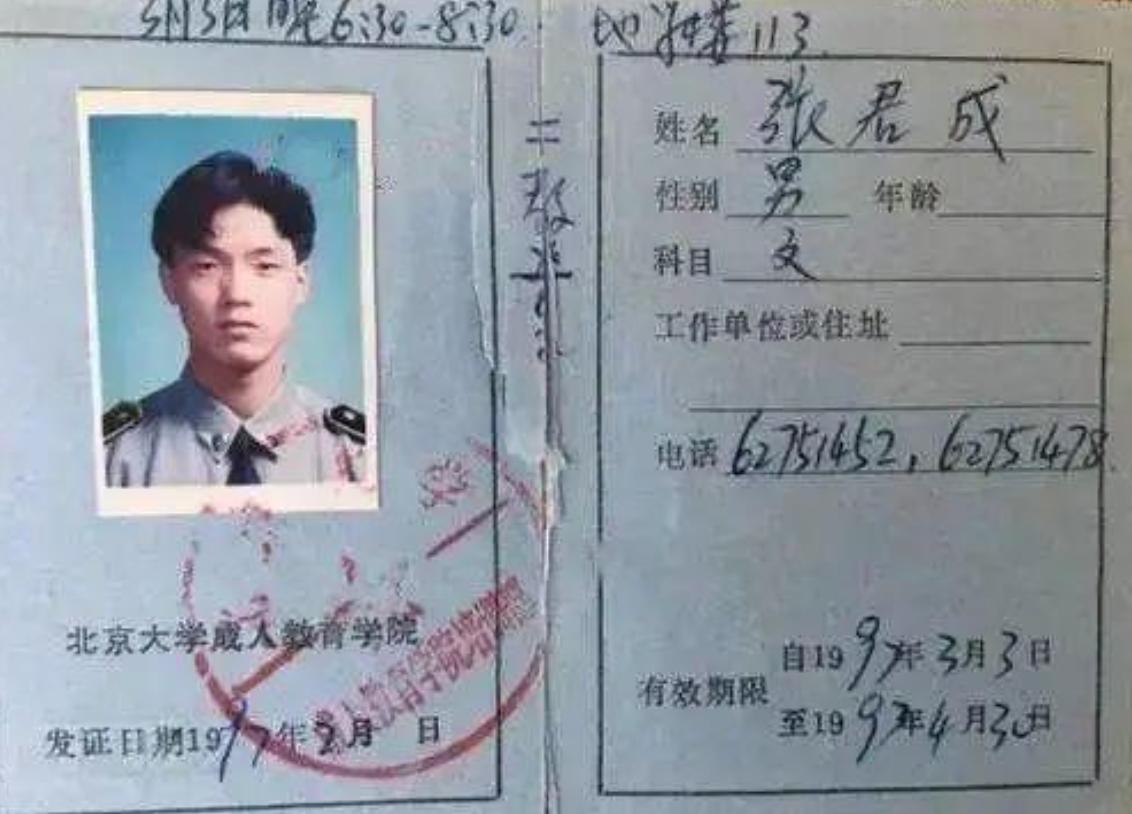 3月3日晚6:30-8:30. 地学楼113.
二教
北京大学成人教育学院
发证日期1997年3月 日
成人教育学院培训部
姓名 张君成
性别 男 年龄
科目 文
工作单位或住址
电话 62751452，62751478
有效期限
自1997年3月3日
至1997年4月30日